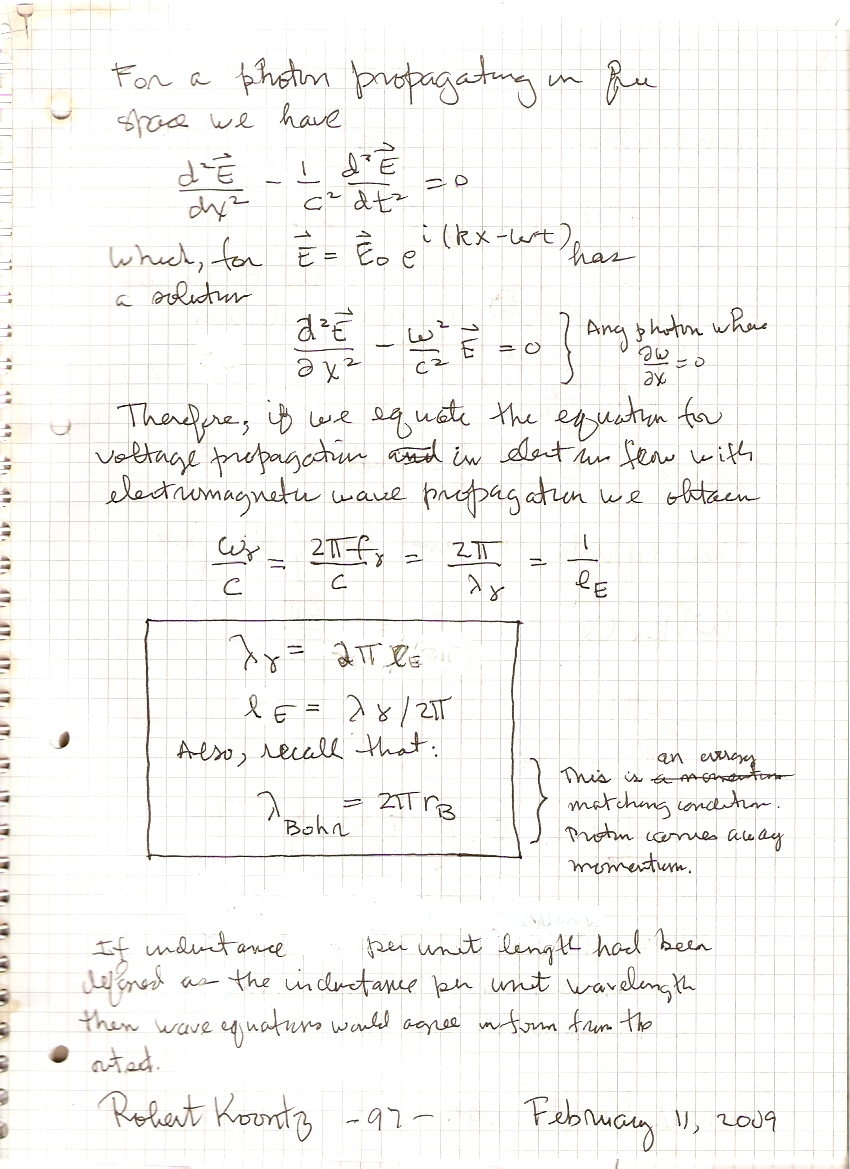 For a photon propagating in free
space we have
d²E⃗/dx² - 1/c² d²E⃗/dt² = 0
which, for E⃗ = E⃗₀ e^i(kx-ωt) has
a solution
d²E⃗/∂x² - ω²/c² E⃗ = 0 } Any photon where ∂ω/∂x = 0
Therefore, if we equate the equation for
voltage propagation and in electron flow with
electromagnetic wave propagation we obtain
ωγ/c = 2πfγ/c = 2π/λγ = 1/ℓE
λγ = 2πℓE
ℓE = λγ/2π
Also, recall that:
λBohr = 2πrB
} This is a momentum an energy
matching condition.
Photon carries away
momentum.
If inductance per unit length had been
defined as the inductance per unit wavelength
then wave equations would agree in form from the
outset.
Robert Koontz -97- February 11, 2009